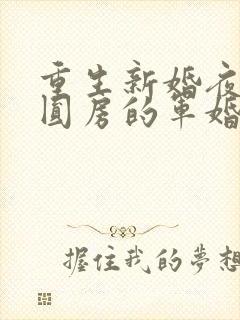 重生新婚夜
圓房的軍婚
握住我的夢想